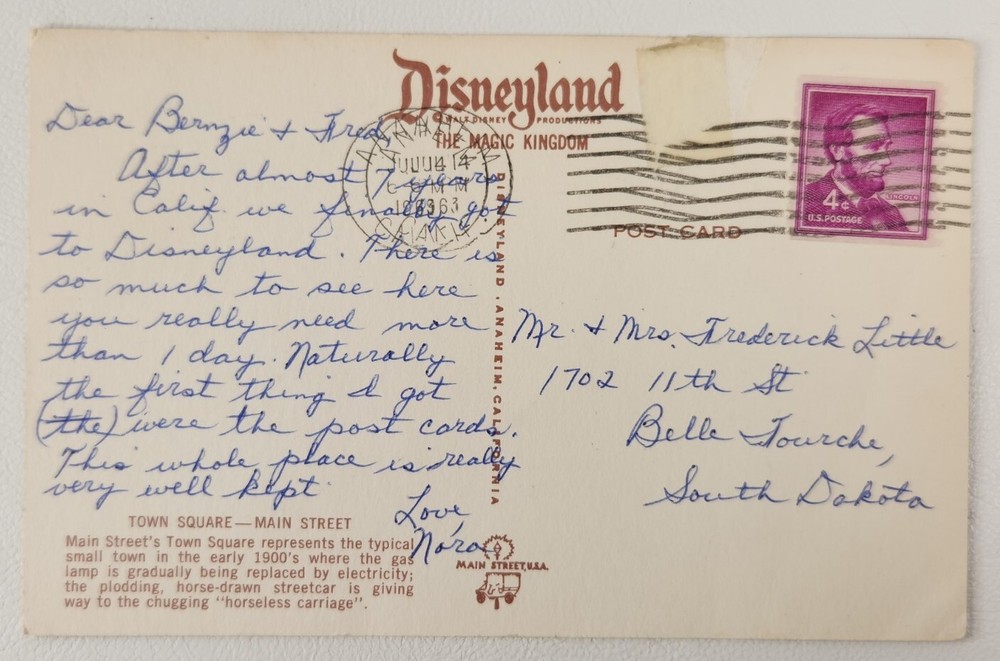 Disneyland
© WALT DISNEY PRODUCTIONS
THE MAGIC KINGDOM
POST CARD
ANAHEIM
JUL 14
PM
1963
CALIF
LINCOLN
4¢
U.S. POSTAGE
Dear Bernzie & Fred
After almost 7 years
in Calif. we finally got
to Disneyland. There is
so much to see here
you really need more
than 1 day. Naturally
the first thing I got
(the) were the post cards.
This whole place is really
very well kept
Love,
Nora
Mr. & Mrs. Frederick Little
1702 11th St
Belle Fourche,
South Dakota
DISNEYLAND · ANAHEIM, CALIFORNIA
TOWN SQUARE—MAIN STREET
Main Street's Town Square represents the typical
small town in the early 1900's where the gas
lamp is gradually being replaced by electricity;
the plodding, horse-drawn streetcar is giving
way to the chugging "horseless carriage".
MAIN STREET, U.S.A.